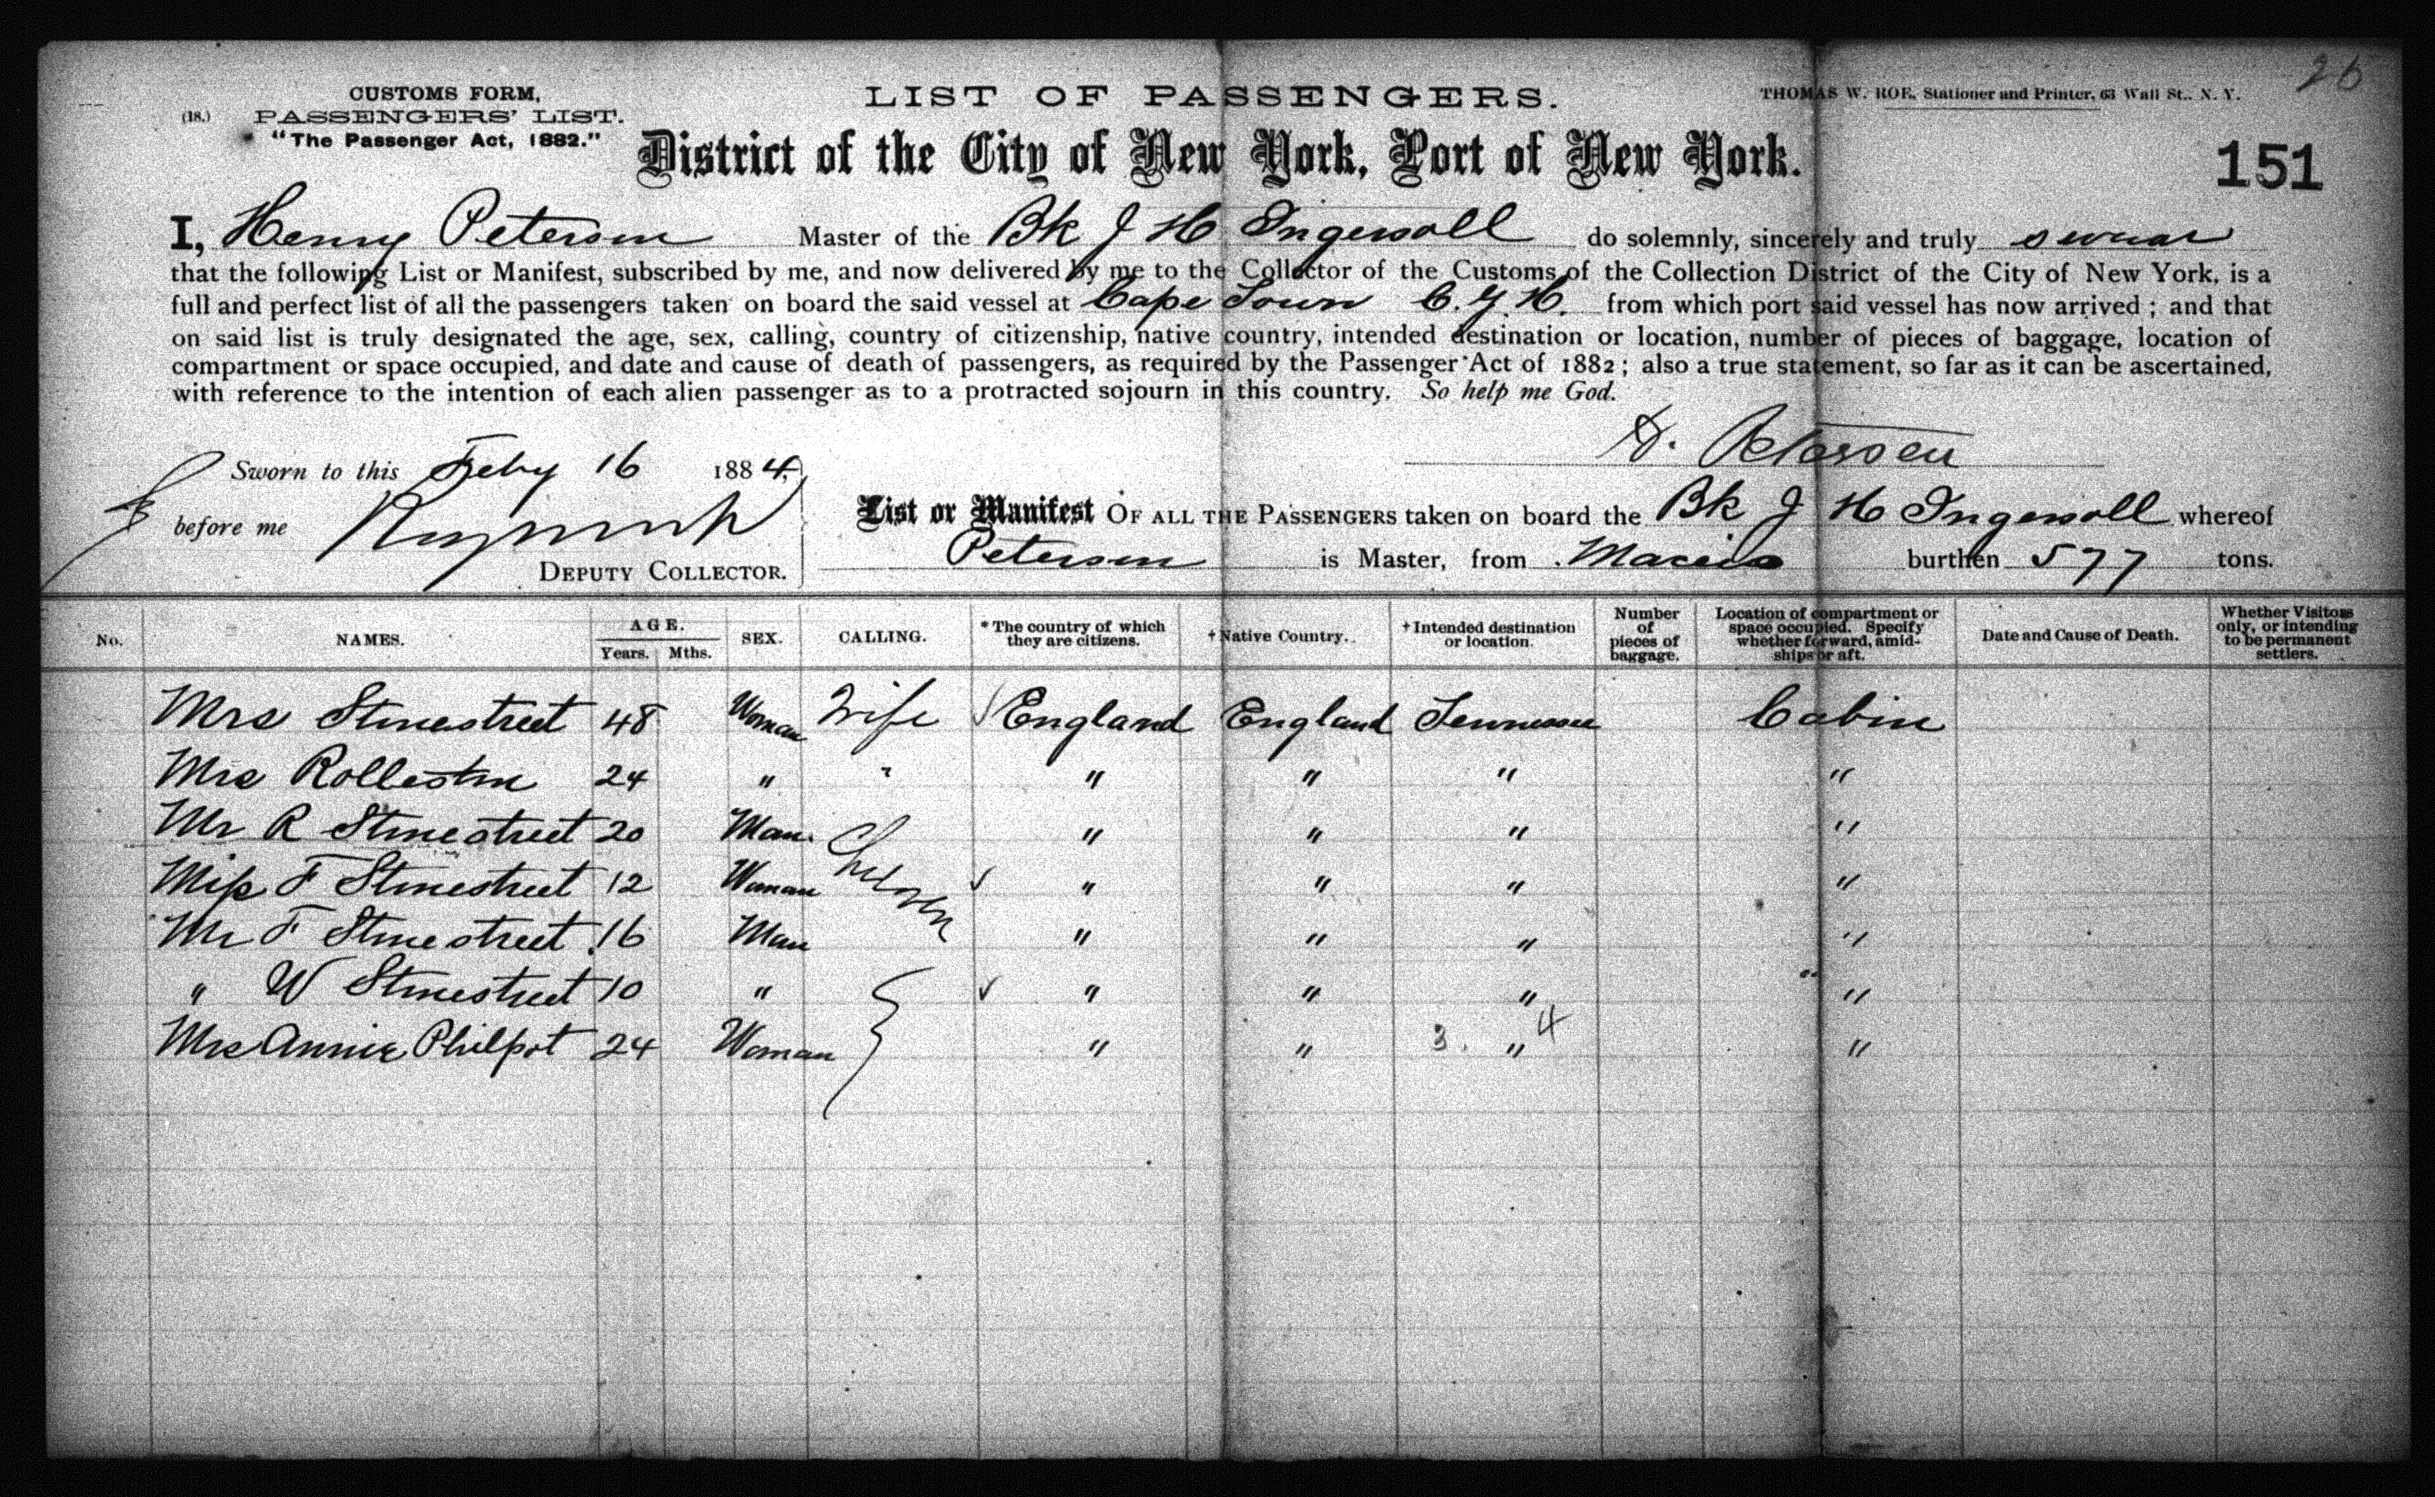 26
CUSTOMS FORM,
(18.) PASSENGERS' LIST.
"The Passenger Act, 1882."
LIST OF PASSENGERS.
THOMAS W. ROE, Stationer and Printer, 63 Wall St., N. Y.
District of the City of New York, Port of New York.
151
I, Henry Petersen Master of the Bk J H Ingersoll do solemnly, sincerely and truly swear
that the following List or Manifest, subscribed by me, and now delivered by me to the Collector of the Customs of the Collection District of the City of New York, is a
full and perfect list of all the passengers taken on board the said vessel at Cape Town C. G. H. from which port said vessel has now arrived; and that
on said list is truly designated the age, sex, calling, country of citizenship, native country, intended destination or location, number of pieces of baggage, location of
compartment or space occupied, and date and cause of death of passengers, as required by the Passenger Act of 1882; also a true statement, so far as it can be ascertained,
with reference to the intention of each alien passenger as to a protracted sojourn in this country. So help me God.
H. Petersen
Sworn to this Feby 16 1884,
before me
DEPUTY COLLECTOR.
List or Manifest OF ALL THE PASSENGERS taken on board the Bk J H Ingersoll whereof
Petersen is Master, from Maceio burthen 577 tons.
No. NAMES. AGE. Years. Mths. SEX. CALLING. * The country of which they are citizens. † Native Country. † Intended destination or location. Number of pieces of baggage. Location of compartment or space occupied. Specify whether forward, amidships or aft. Date and Cause of Death. Whether Visitors only, or intending to be permanent settlers.
Mrs Stonestreet 48 Woman Wife ✓ England England Tennessee Cabin
Mrs Rolleston 24 " " " " " "
Mr R Stonestreet 20 Man. Children " " " "
Miss F Stonestreet 12 Woman ✓ " " " "
Mr F Stonestreet 16 Man " " " "
" W Stonestreet 10 " ✓ " " " "
Mrs Annie Philpot 24 Woman " " 3. " 4 "